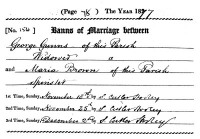 (Page 78) The Year 1877
[No. 156] Banns of Marriage between
George Gunns of this Parish
Widower
and Maria Brown of this Parish
Spinster
1st Time, Sunday November 18th by S. Cutler Hooley
2nd Time, Sunday November 25th by S. Cutler Hooley
3rd Time, Sunday December 2nd by S. Cutler Hooley